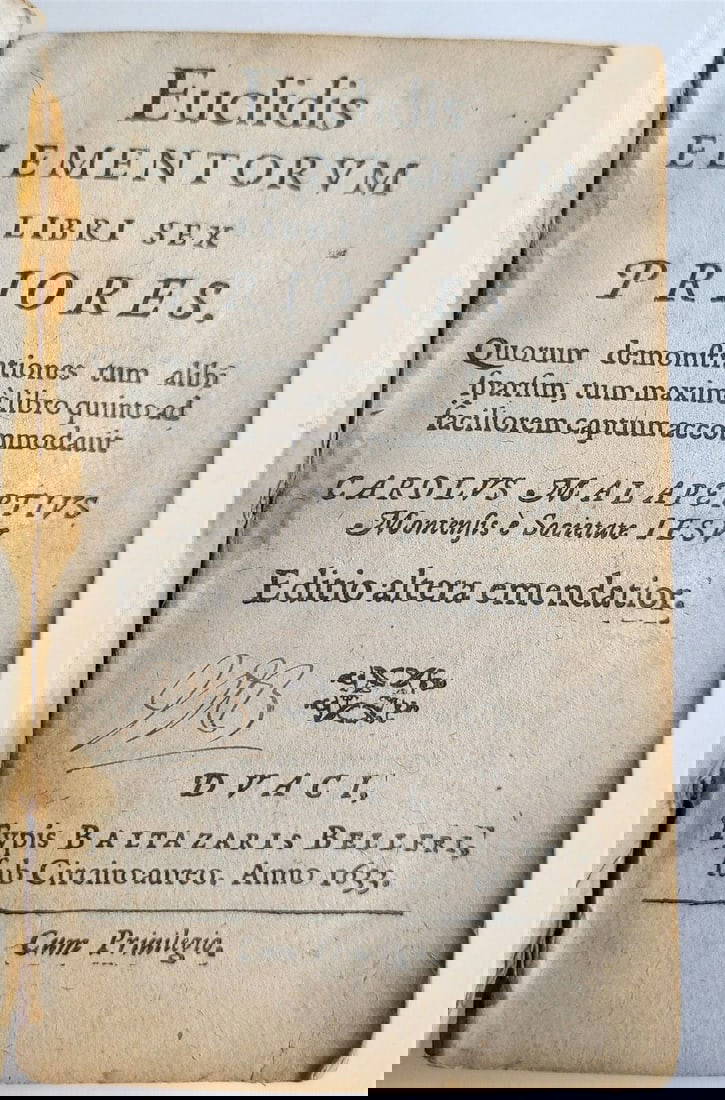 Euclidis
ELEMENTORVM
LIBRI SEX
PRIORES.
Quorum demonſtrationes tum alibi
ſparſim, tum maximè
è libro quinto ad
faciliorem captum accommodauit
CAROLVS MALAPERTIVS
Montenſis è Societate IESV
Editio altera emendatior.
DVACI,
Typis BALTAZARIS BELLERI,
ſub Circino aureo, Anno 1633.
Cum Priuilegio.